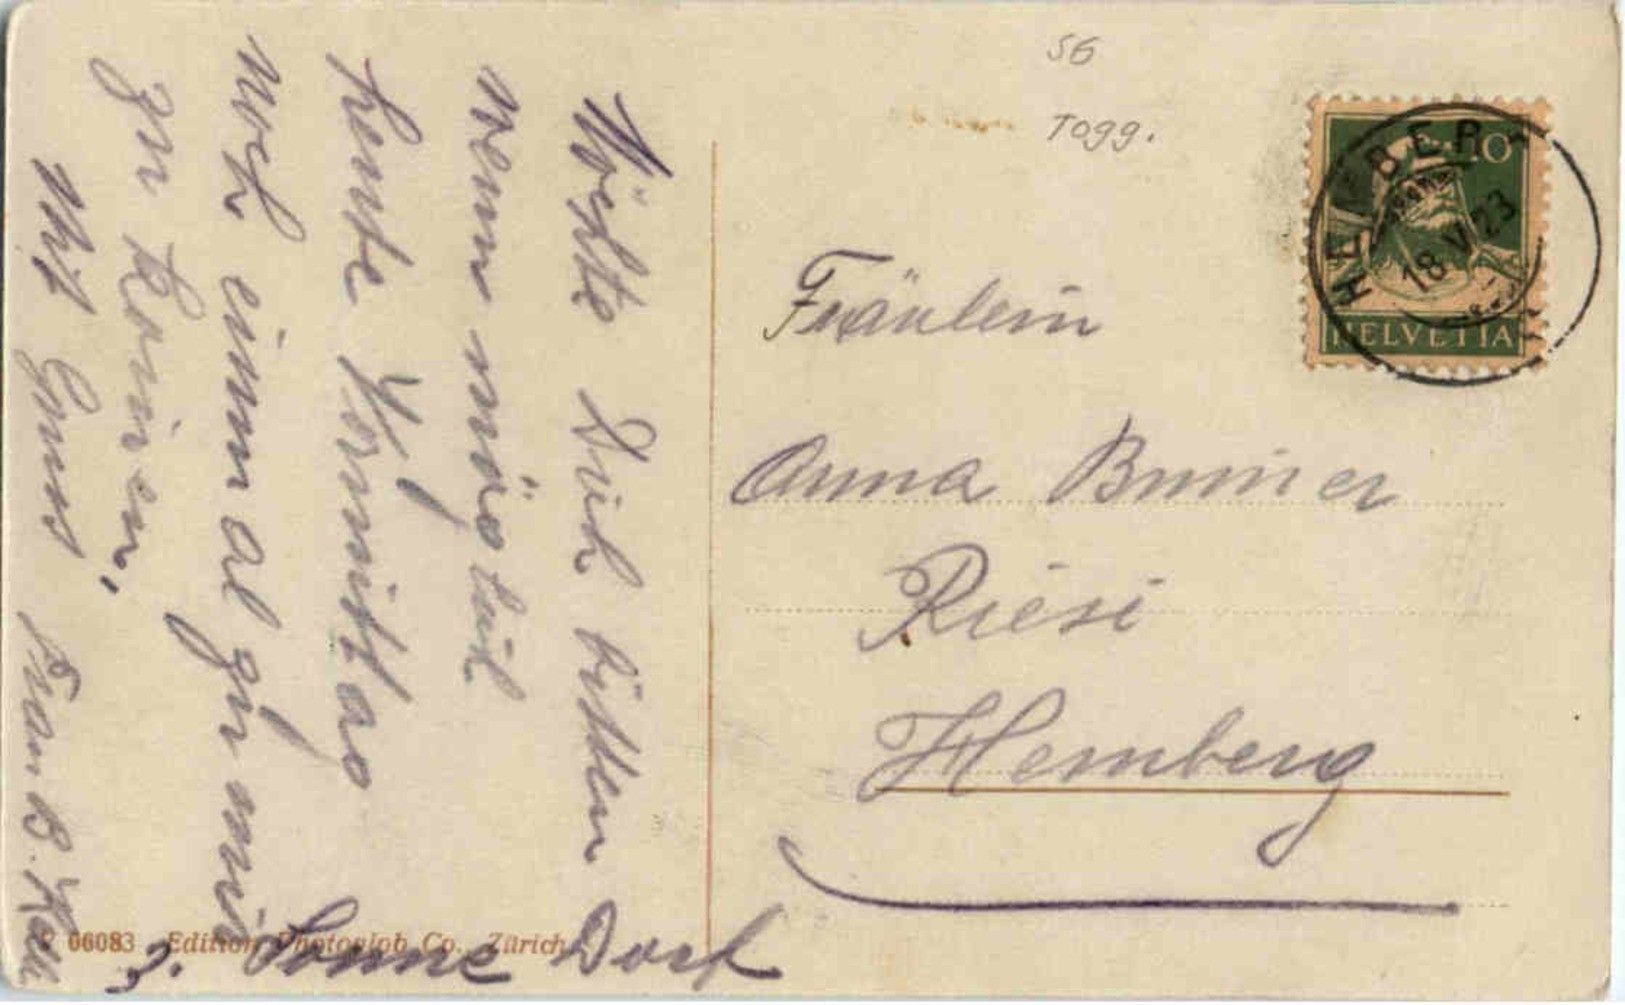 Möchte Dich bitten
wenn möglich
heute Vormittag
noch einmal zu mir
zu komen,
Mit Gruss Frau B.
z. Sonne Dorf
06083 Edition Photoglob Co., Zürich
SG
Togg.
HEMBERG
18 V 23
10
HELVETIA
Fräulein
Anna Brunner
Riesi
Hemberg